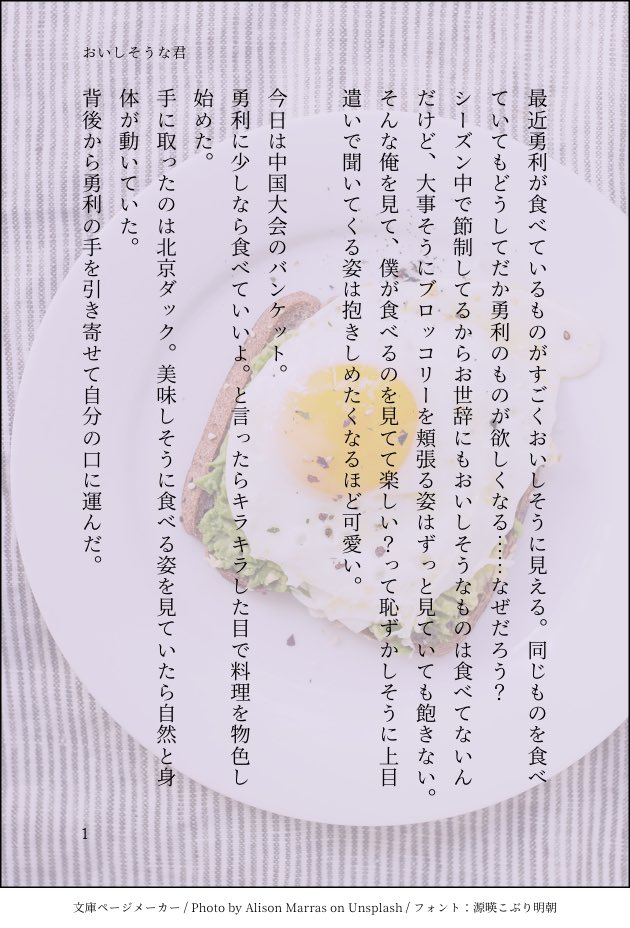 おいしそうな君
最近勇利が食べているものがすごくおいしそうに見える。同じものを食べ
ていてもどうしてだか勇利のものが欲しくなる……なぜだろう？
シーズン中で節制してるからお世辞にもおいしそうなものは食べてないん
だけど、大事そうにブロッコリーを頬張る姿はずっと見ていても飽きない。
そんな俺を見て、僕が食べるのを見てて楽しい？って恥ずかしそうに上目
遣いで聞いてくる姿は抱きしめたくなるほど可愛い。
今日は中国大会のバンケット。
勇利に少しなら食べていいよ。と言ったらキラキラした目で料理を物色し
始めた。
手に取ったのは北京ダック。美味しそうに食べる姿を見ていたら自然と身
体が動いていた。
背後から勇利の手を引き寄せて自分の口に運んだ。
1
文庫ページメーカー / Photo by Alison Marras on Unsplash / フォント：源暎こぶり明朝